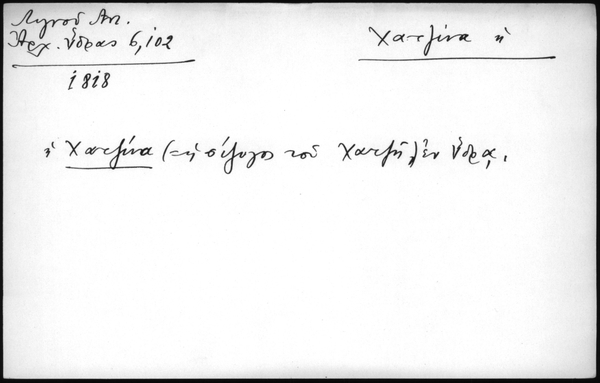 Λιγνοῦ Ἀν.
Ἀρχ. Ὕδρας 6, 102
1818
Χατζίνα ἡ
ἡ Χατζίνα (=ἡ σύζυγος τοῦ Χατζῆ) ἐν Ὕδρᾳ.